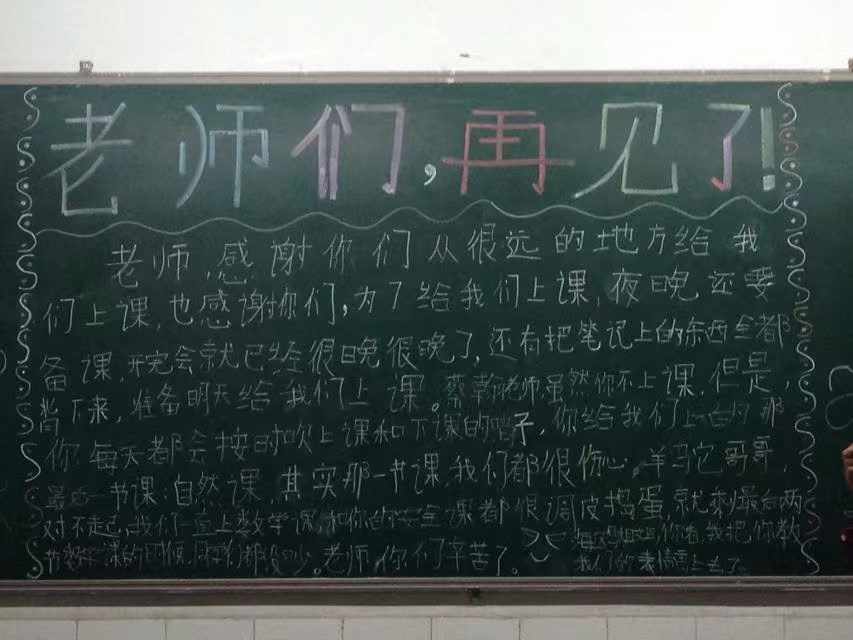 老师们,再见了!
老师,感谢你们从很远的地方给我
们上课,也感谢你们,为了给我们上课,夜晚还要
备课,开完会就已经很晚很晚了,还有把笔记上的东西全都
背下来,准备明天给我们上课。蔡翰老师,虽然你不上课,但是,
你每天都会按时吹上课和下课的哨子,你给我们上的那
最后一书课:自然课,其实那一书课,我们都很伤心。羊马它哥哥,
对不起,我们一直上数学课和你的安全课都很调皮捣蛋,就来到最后两
节数学课的时候,同学们都没少。老师,你们辛苦了。
你看,我把你教
我们的